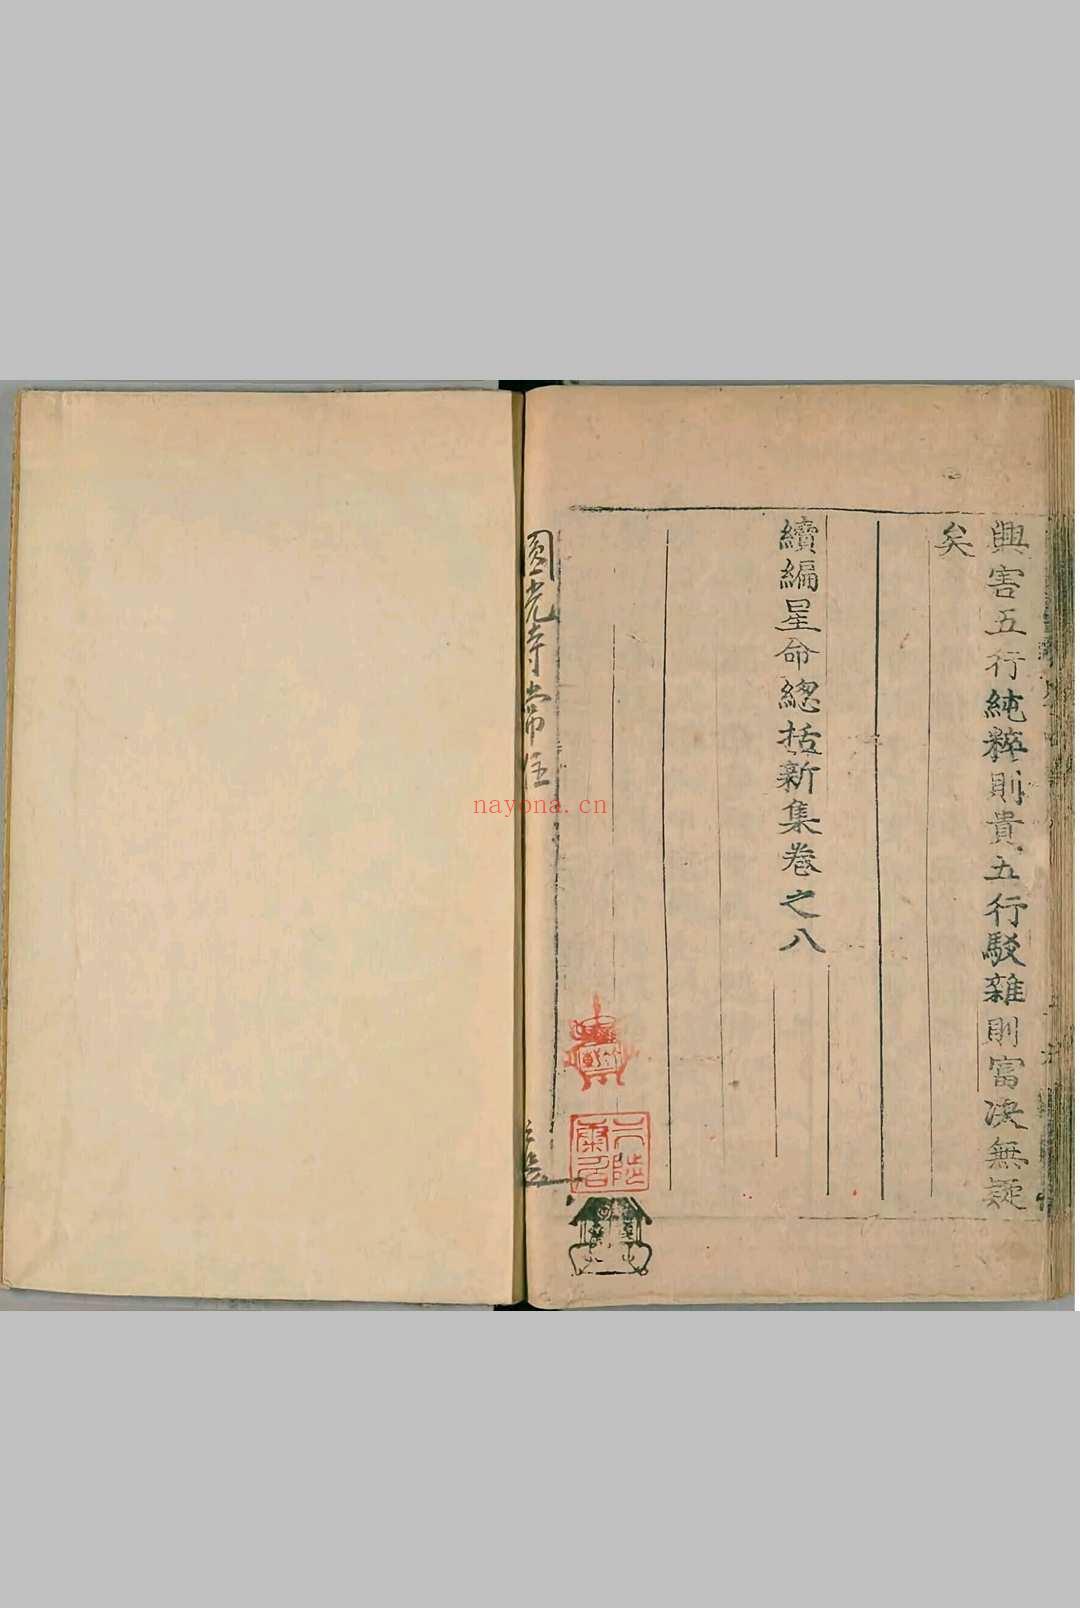 興害五行純粹則貴五行駁雜則富決無疑
矣
續編星命總括新集卷之八
圓光寺常住
nayona.cn